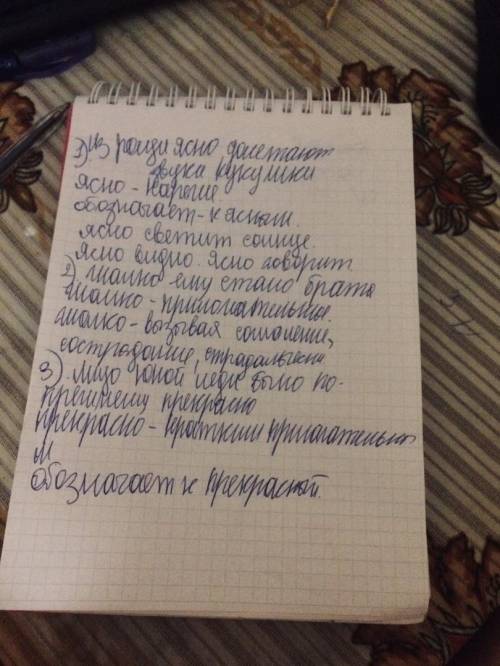 1) Из рощи ясно долетают
звуки кукушки
Ясно - наречие.
обозначает - к ясным.
Ясно светит солнце.
Ясно видно. Ясно говорит
2) Жалко ему стало брата
Жалко - прилогательные.
Жалко - возывая сожаление,
сострадание, страдальчески
3) Лицо юной леди было по-
прежнему прекрасно
прекрасно - кратким прилогательны
м
обозначает к прекрасной.